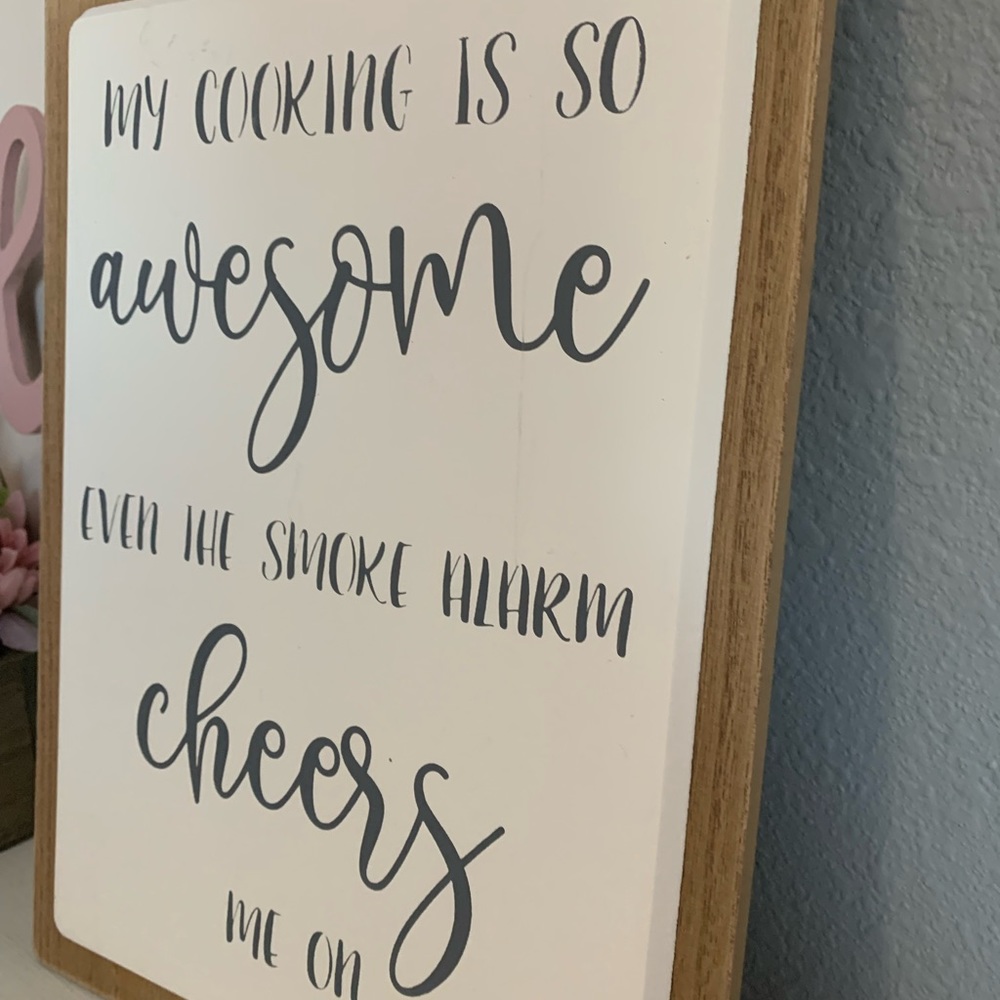 MY COOKING IS SO
awesome
EVEN THE SMOKE ALARM
cheers
ME ON